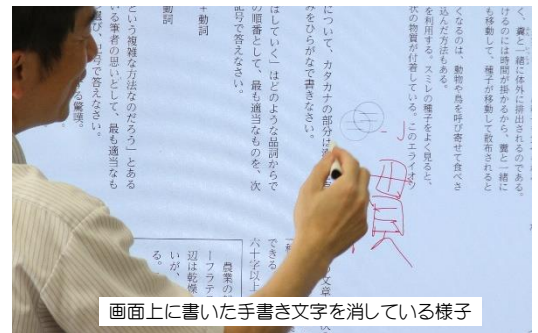 く、糞と一緒に体外に排出されるのである。
けるのには時間が掛かるから、糞と一緒に
も移動して、種子が移動して散布されると
くなるのは、動物や鳥を呼び寄せて食べさ
込んだ方法もある。
を利用する。スミレの種子をよく見ると、
状の物質が付着している。このエライオソ
について、カタカナの部分は
みをひらがなで書きなさい。
はしていく」はどのような品詞からで
の順番として、最も適当なものを、次
記号で答えなさい。
＋動詞
動詞
という複雑な方法なのだろう」とある
いる筆者の思いとして、最も適当なも
選び、記号で答えなさい。
る驚嘆。
の文章
六十字以上
できる
農業の
ーフラテス
辺は乾燥
いが、
る。
画面上に書いた手書き文字を消している様子